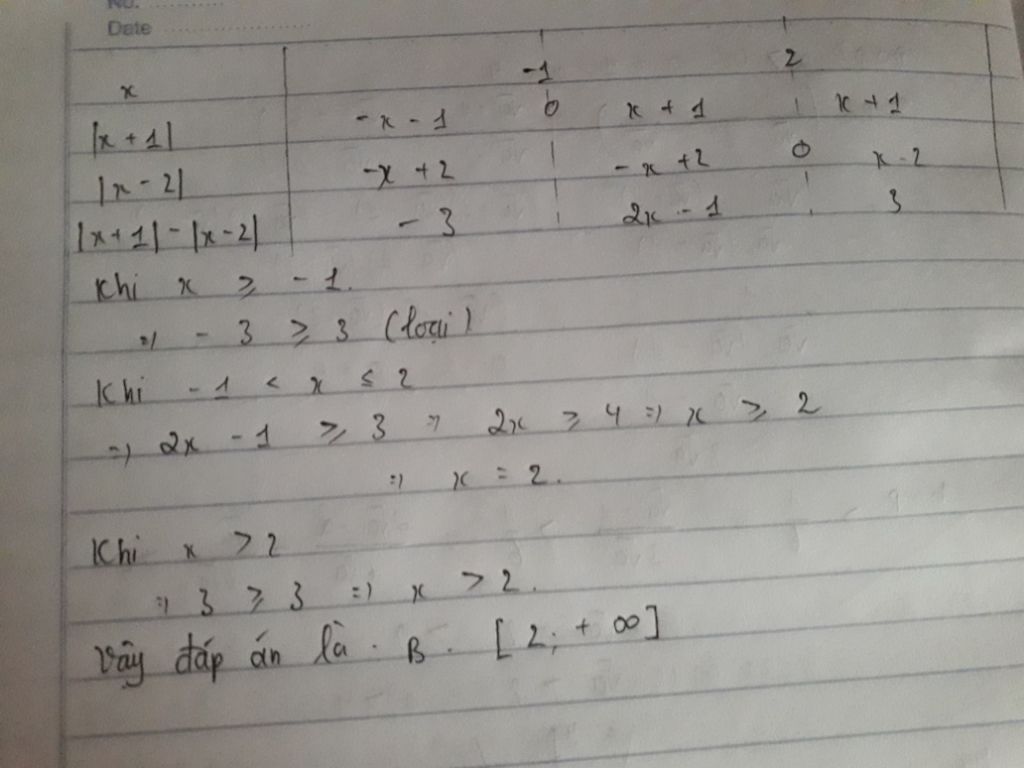 No. ..........
Date ....................
x -1 2
|x + 1| -x - 1 0 x + 1 | x + 1
|x - 2| -x + 2 | -x + 2 0 x - 2
|x+1| - |x-2| - 3 | 2x - 1 | 3
Khi x ≥ - 1.
=) - 3 ≥ 3 (loại)
Khi - 1 < x ≤ 2
=) 2x - 1 ≥ 3 =) 2x ≥ 4 =) x ≥ 2
=) x = 2.
Khi x > 2
=) 3 ≥ 3 =) x > 2.
Vậy đáp án là . B . [ 2 ; + ∞ ]